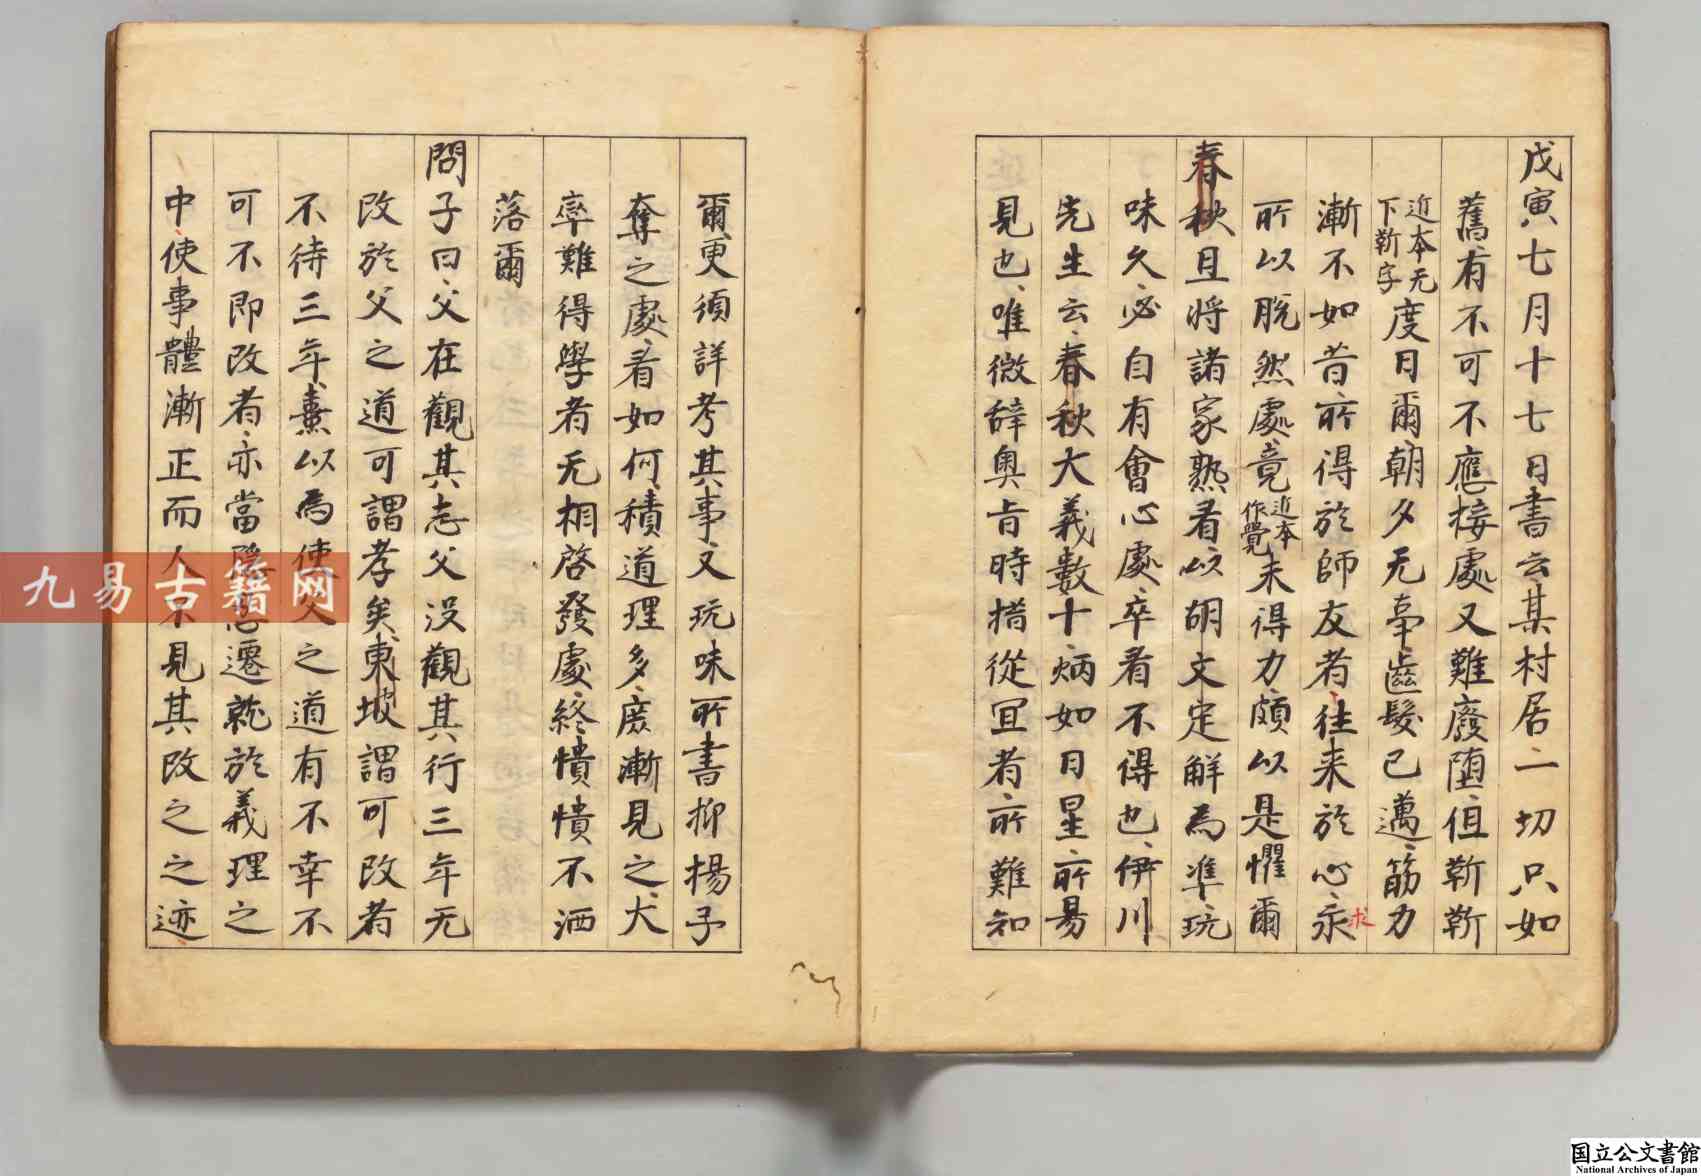 戊寅七月十七日書云某村居一切只如
舊有不可不應接處又難廢堕但靳靳
近本无
下靳字
度日爾朝夕无亊齒髮已邁筋力
漸不如昔所得於師友者往来於心永
求
所以脱然處竟
近本
作覺
未得力頗以是懼爾
春秋且將諸家熟看以胡文定解為準玩
味久必自有會心處卒看不得也伊川
先生云春秋大義數十炳如日星所易
見也唯微辞奥旨時措從冝者所難知
爾更須詳考其事又玩味所書抑揚予
奪之處看如何積道理多庻漸見之大
率難得學者无相啓發處終憒憒不洒
落爾
問子曰父在觀其志父没觀其行三年无
改於父之道可謂孝矣東坡謂可改者
不待三年熹以為使父之道有不幸不
可不即改者亦當隐忍遷就於義理之
中使事體漸正而人不見其改之之迹
九易古籍网
国立公文書館
National Archives of Japan